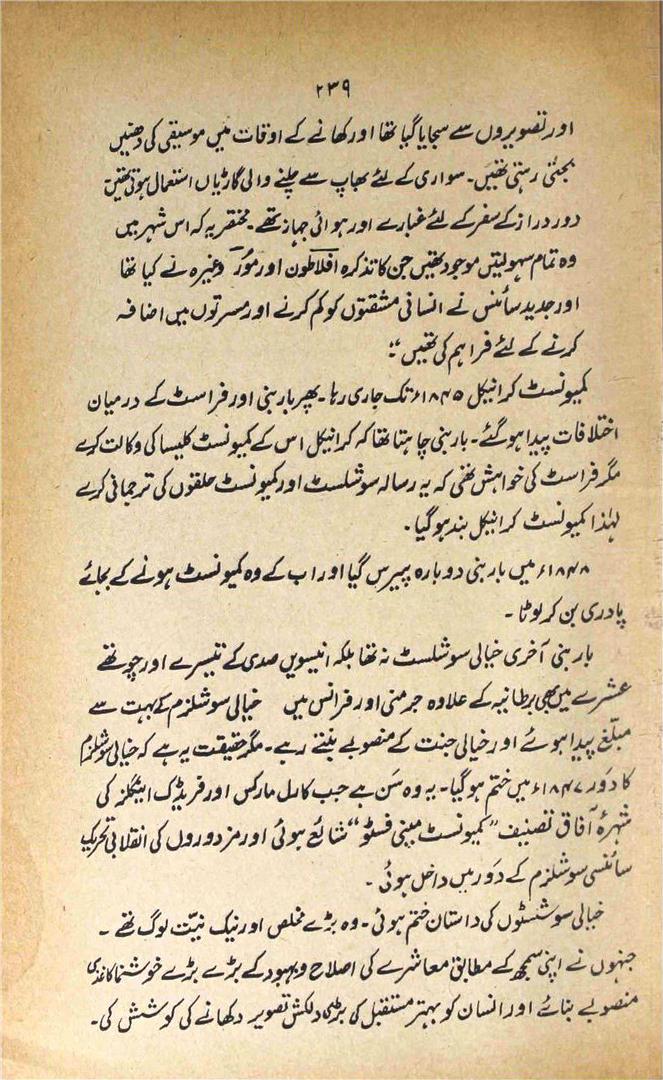 ۲۳۹
اور تصویروں سے سجایا گیا تھا اور کھانے کے اوقات میں موسیقی کی دھنیں
بجتی رہتی تھیں۔ سواری کے لئے بھاپ سے چلنے والی گاڑیاں استعمال ہوتی تھیں۔
دور دراز کے سفر کے لئے غبارے اور ہوائی جہاز تھے۔ مختصر یہ کہ اس شہر میں
وہ تمام سہولتیں موجود تھیں جن کا تذکرہ افلاطون اور مور وغیرہ نے کیا تھا
اور جدید سائنس نے انسانی مشقتوں کو کم کرنے اور مسرتوں میں اضافہ
کرنے کے لئے فراہم کی تھیں"۔
کمیونسٹ کرانیکل ۱۸۴۵ء تک جاری رہا۔ پھر باربنی اور فراسٹ کے درمیان
اختلافات پیدا ہو گئے۔ باربنی چاہتا تھا کہ کرانیکل اس کے کمیونسٹ کلیسا کی وکالت کرے
مگر فراسٹ کی خواہش تھی کہ یہ رسالہ سوشلسٹ اور کمیونسٹ حلقوں کی ترجمانی کرے
لہٰذا کمیونسٹ کرانیکل بند ہو گیا۔
۱۸۴۸ء میں باربنی دوبارہ پیرس گیا اور اب کے وہ کمیونسٹ ہونے کے بجائے
پادری بن کر لوٹا۔
باربنی آخری خیالی سوشلسٹ نہ تھا بلکہ انیسویں صدی کے تیسرے اور چوتھے
عشرے میں بھی برطانیہ کے علاوہ جرمنی اور فرانس میں خیالی سوشلزم کے بہت سے
مبلّغ پیدا ہوئے اور خیالی جنت کے منصوبے بنتے رہے۔ مگر حقیقت یہ ہے کہ خیالی سوشلزم
کا دَور ۱۸۴۷ء میں ختم ہو گیا۔ یہ وہ سَن ہے جب کارل مارکس اور فریڈرک اینگلز کی
شہرۂ آفاق تصنیف "کمیونسٹ مینی فسٹو" شائع ہوئی اور مزدوروں کی انقلابی تحریک
سائنسی سوشلزم کے دَور میں داخل ہوئی۔
خیالی سوشلسٹوں کی داستان ختم ہوئی۔ وہ بڑے مخلص اور نیک نیّت لوگ تھے۔
جنہوں نے اپنی سمجھ کے مطابق معاشرے کی اصلاح و بہبود کے بڑے بڑے خوشنما کاغذی
منصوبے بنائے اور انسان کو بہتر مستقبل کی بڑی دلکش تصویر دکھانے کی کوشش کی۔